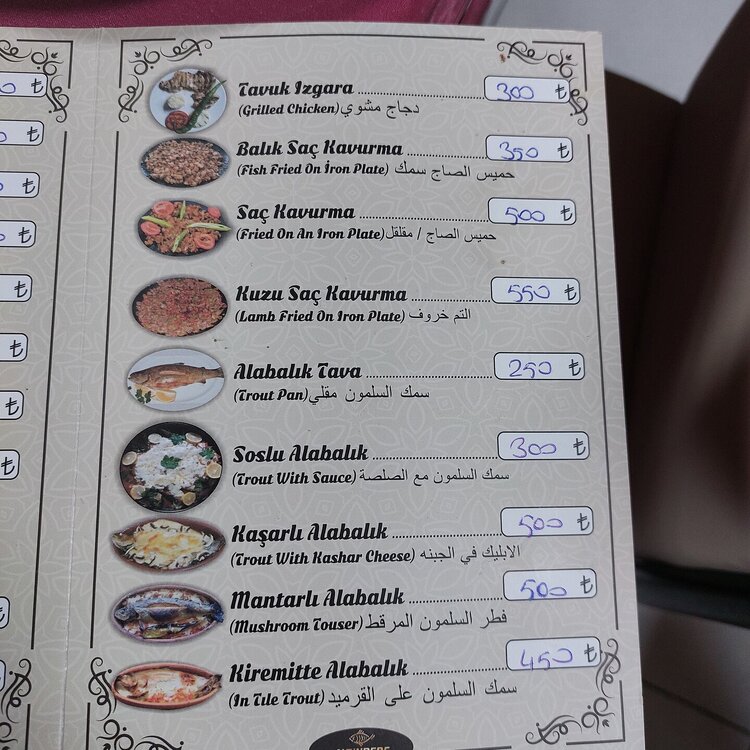 Tavuk Izgara 300 ₺
(Grilled Chicken) دجاج مشوي
Balık Saç Kavurma 350 ₺
(Fish Fried On İron Plate) حميس الصاج سمك
Saç Kavurma 500 ₺
(Fried On An Iron Plate) حميس الصاج / مقلقل
Kuzu Saç Kavurma 550 ₺
(Lamb Fried On Iron Plate) التم خروف
Alabalık Tava 250 ₺
(Trout Pan) سمك السلمون مقلي
Soslu Alabalık 300 ₺
(Trout With Sauce) سمك السلمون مع الصلصة
Kaşarlı Alabalık 500 ₺
(Trout With Kashar Cheese) الابليك في الجبنه
Mantarlı Alabalık 500 ₺
(Mushroom Touser) فطر السلمون المرقط
Kiremitte Alabalık 450 ₺
(In Tile Trout) سمك السلمون على القرميد